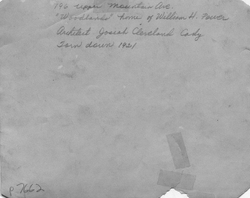 Upper Mountain Ave.
"Woodlands" home of William H. Power
Architect Josiah Cleveland Cady
Torn down 1921